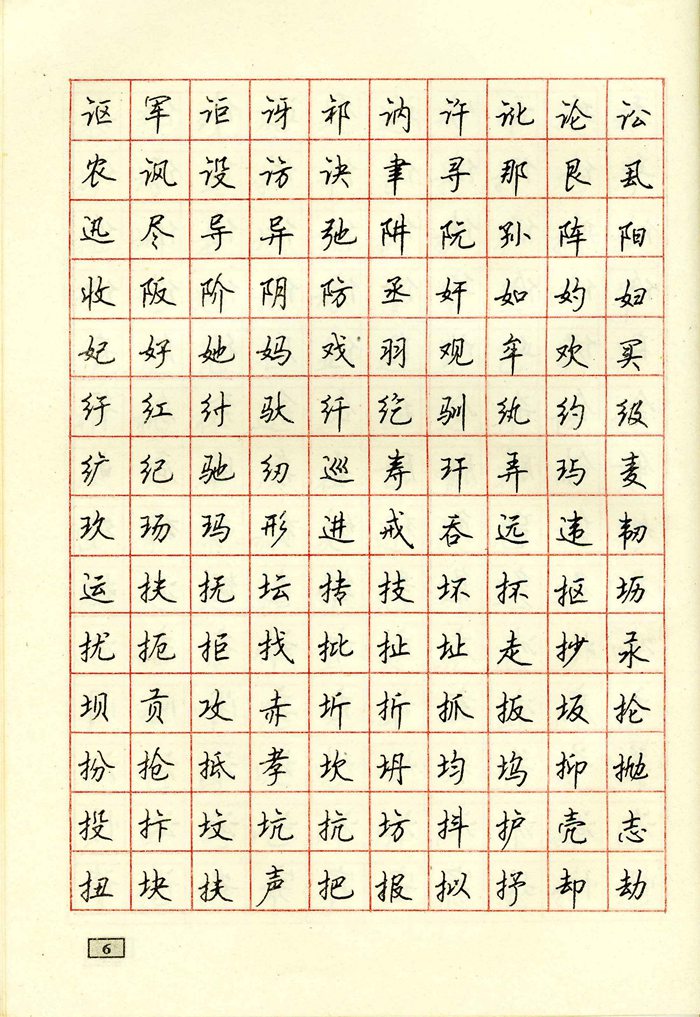 讴军讵讶祁讷许讹论讼
农讽设访诀聿寻那艮
迅尽导异弛阱阮孙阵阳
收阪阶阴防丞奸如妁妇
妃好她妈戏羽观牟欢买
纡红纣驮纤纥驯纨约级
纩纪驰纫巡寿玕弄玙麦
玖玚玛形进戒吞远违韧
运扶抚坛抟技坏抔抠坜
扰扼拒找批扯址走抄汞
坝贡攻赤圻折抓扳坂抡
扮抢抵孝坎坍均坞抑抛
投抃坟坑抗坊抖护壳志
扭块抉声把报拟抒却劫
6